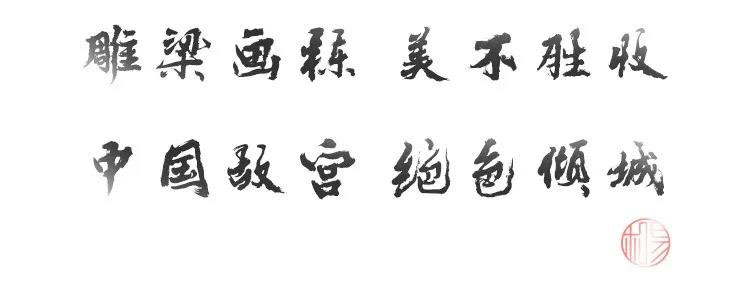 雕梁画栋 美不胜收
中国故宫 绝色倾城